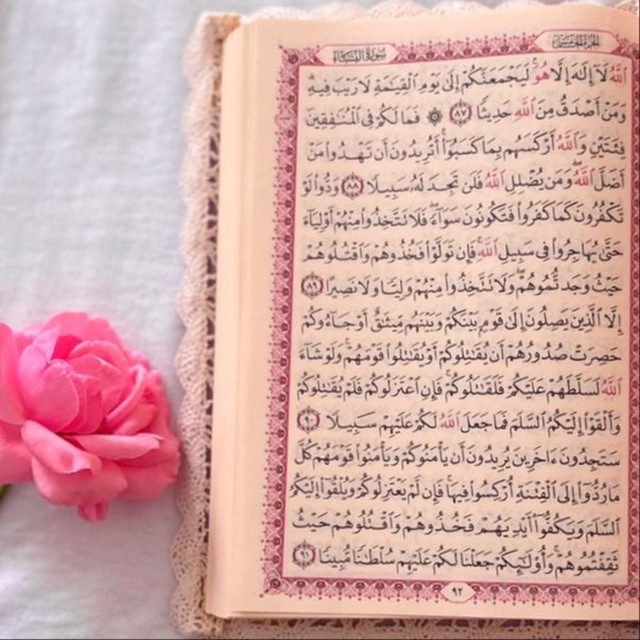 سورة النساء
الجزء الخامس
ٱللَّهُ لَآ إِلَٰهَ إِلَّا هُوَۚ لَيَجْمَعَنَّكُمْ إِلَىٰ يَوْمِ ٱلْقِيَٰمَةِ لَا رَيْبَ فِيهِۗ
وَمَنْ أَصْدَقُ مِنَ ٱللَّهِ حَدِيثًا ٨٧ ۞ فَمَا لَكُمْ فِى ٱلْمُنَٰفِقِينَ
فِئَتَيْنِ وَٱللَّهُ أَرْكَسَهُم بِمَا كَسَبُوٓا۟ۚ أَتُرِيدُونَ أَن تَهْدُوا۟ مَنْ
أَضَلَّ ٱللَّهُۖ وَمَن يُضْلِلِ ٱللَّهُ فَلَن تَجِدَ لَهُۥ سَبِيلًا ٨٨ وَدُّوا۟ لَوْ
تَكْفُرُونَ كَمَا كَفَرُوا۟ فَتَكُونُونَ سَوَآءًۖ فَلَا تَتَّخِذُوا۟ مِنْهُمْ أَوْلِيَآءَ
حَتَّىٰ يُهَاجِرُوا۟ فِى سَبِيلِ ٱللَّهِۚ فَإِن تَوَلَّوْا۟ فَخُذُوهُمْ وَٱقْتُلُوهُمْ
حَيْثُ وَجَدتُّمُوهُمْۖ وَلَا تَتَّخِذُوا۟ مِنْهُمْ وَلِيًّا وَلَا نَصِيرًا ٨٩
إِلَّا ٱلَّذِينَ يَصِلُونَ إِلَىٰ قَوْمٍۭ بَيْنَكُمْ وَبَيْنَهُم مِّيثَٰقٌ أَوْ جَآءُوكُمْ
حَصِرَتْ صُدُورُهُمْ أَن يُقَٰتِلُوكُمْ أَوْ يُقَٰتِلُوا۟ قَوْمَهُمْۚ وَلَوْ شَآءَ
ٱللَّهُ لَسَلَّطَهُمْ عَلَيْكُمْ فَلَقَٰتَلُوكُمْۚ فَإِنِ ٱعْتَزَلُوكُمْ فَلَمْ يُقَٰتِلُوكُمْ
وَأَلْقَوْا۟ إِلَيْكُمُ ٱلسَّلَمَ فَمَا جَعَلَ ٱللَّهُ لَكُمْ عَلَيْهِمْ سَبِيلًا ٩٠
سَتَجِدُونَ ءَاخَرِينَ يُرِيدُونَ أَن يَأْمَنُوكُمْ وَيَأْمَنُوا۟ قَوْمَهُمْ كُلَّ
مَا رُدُّوٓا۟ إِلَى ٱلْفِتْنَةِ أُرْكِسُوا۟ فِيهَاۚ فَإِن لَّمْ يَعْتَزِلُوكُمْ وَيُلْقُوٓا۟ إِلَيْكُمُ
ٱلسَّلَمَ وَيَكُفُّوٓا۟ أَيْدِيَهُمْ فَخُذُوهُمْ وَٱقْتُلُوهُمْ حَيْثُ
ثَقِفْتُمُوهُمْۚ وَأُو۟لَٰٓئِكُمْ جَعَلْنَا لَكُمْ عَلَيْهِمْ سُلْطَٰنًا مُّبِينًا ٩١
٩٢